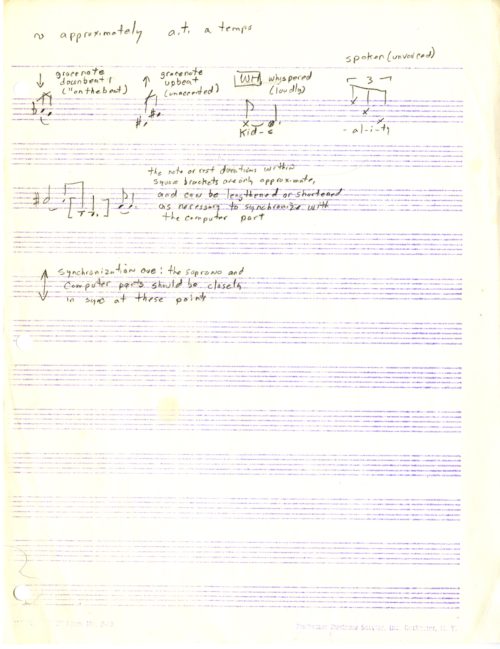 ~ approximately a.t. a tempo
spoken (unvoiced)
↓ gracenote
downbeat
("on the beat)
↑ gracenote
upbeat
(unaccented)
WH whispered
(loudly)
3
Kid-s
-al-i-ty
the note or rest durations within
square brackets are only approximate,
and can be lengthened or shortened
as necessary to synchronize with
the computer part
↕ synchronization cue: the soprano and
computer parts should be closely
in sync at these points